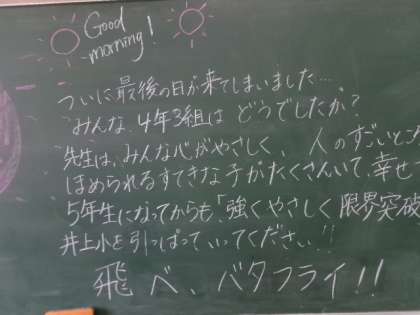 Good
morning!
ついに最後の日が来てしまいました…
みんな、4年3組は どうでしたか?
先生は、みんな心がやさしく、人のすごいところ
ほめられるすてきな子がたくさんいて、幸せ
5年生になってからも、「強くやさしく 限界突破
井上小を引っぱって、いってください!!
飛べ、バタフライ!!